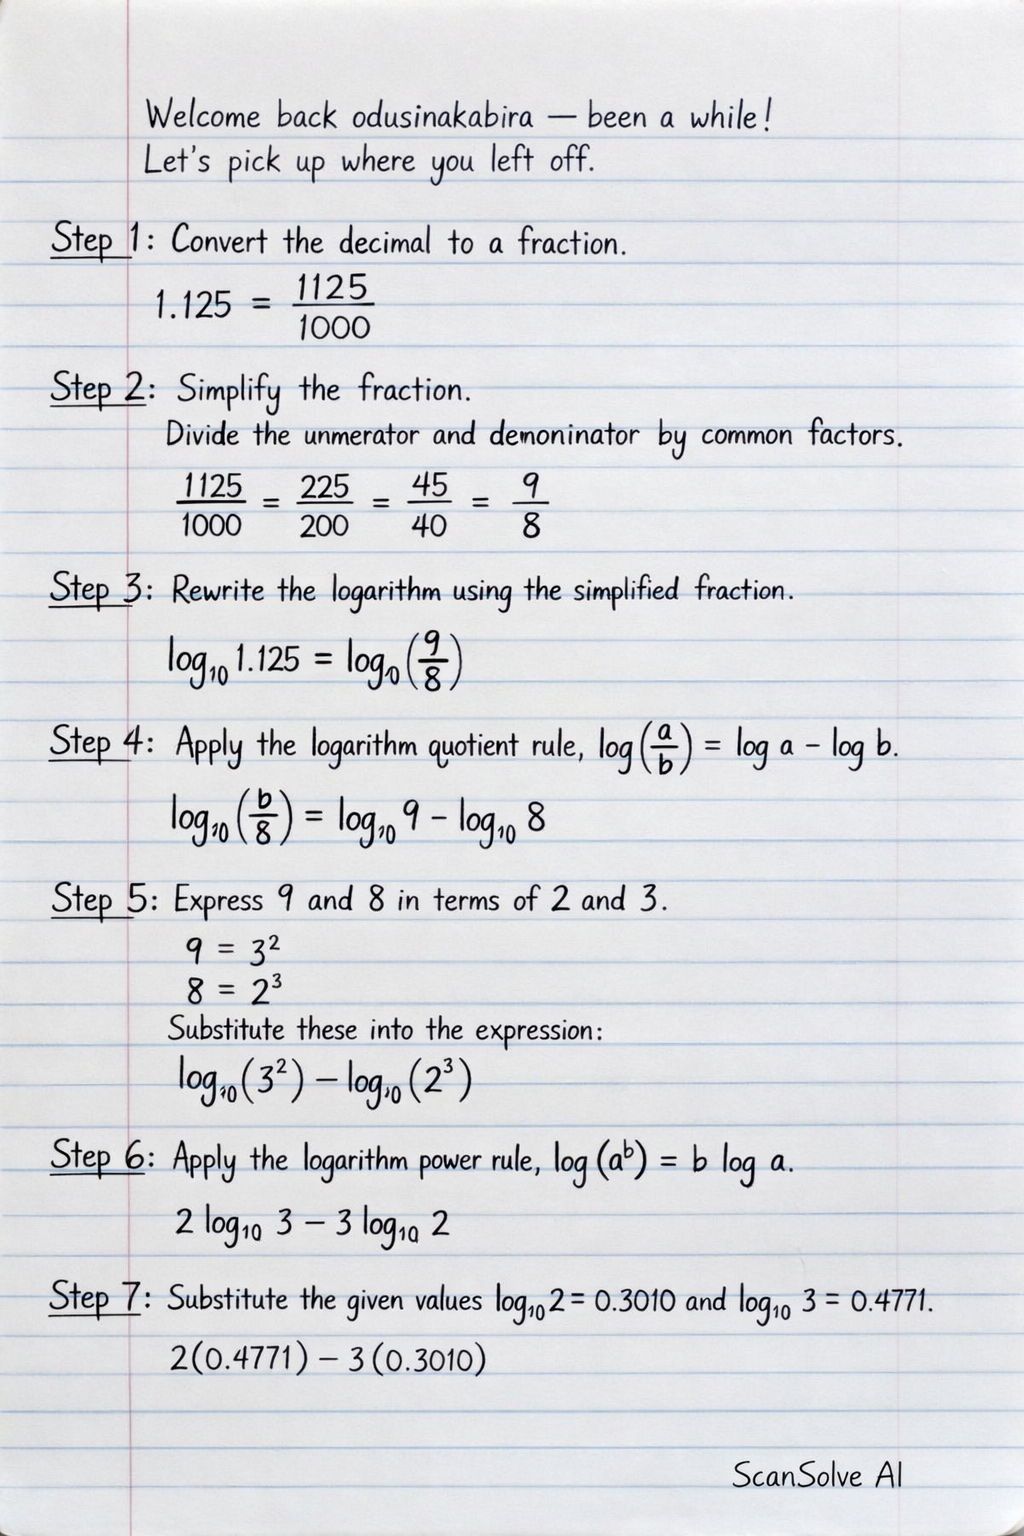 Welcome back odusinakabira — been a while!
Let's pick up where you left off.
Step 1: Convert the decimal to a fraction.
1.125 = 1125/1000
Step 2: Simplify the fraction.
Divide the unmerator and demoninator by common factors.
1125/1000 = 225/200 = 45/40 = 9/8
Step 3: Rewrite the logarithm using the simplified fraction.
log₁₀ 1.125 = log₀ (9/8)
Step 4: Apply the logarithm quotient rule, log(a/b) = log a - log b.
log₁₀ (b/8) = log₁₀ 9 - log₁₀ 8
Step 5: Express 9 and 8 in terms of 2 and 3.
9 = 3²
8 = 2³
Substitute these into the expression:
log₁₀(3²) - log₁₀(2³)
Step 6: Apply the logarithm power rule, log (aᵇ) = b log a.
2 log₁₀ 3 - 3 log₁₀ 2
Step 7: Substitute the given values log₁₀ 2 = 0.3010 and log₁₀ 3 = 0.4771.
2(0.4771) - 3(0.3010)
ScanSolve AI